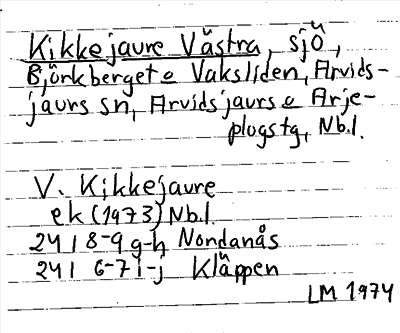 Kikkejaure Västra, sjö,
Björkberget o Vaksliden, Arvids-
jaurs sn, Arvidsjaurs o Arje-
plogs tg, Nb.l.
V. Kikkejaure
ek (1973) Nb.l.
24 I 8-9 g-h Nordanås
24 I 6-7 i-j Kläppen
LM 1974